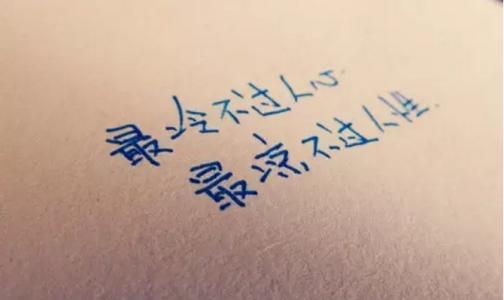 最冷不过人心
最凉不过人性